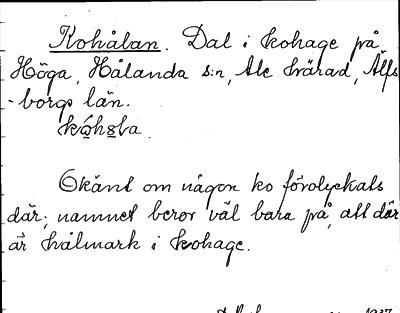 Kohålan. Dal i kohage på
Höga, Hålanda s:n, Ale härad, Älfs
-borgs län.
Okänt om någon ko förolyckats
där; namnet beror väl bara på, att där
är hålmark i kohage.